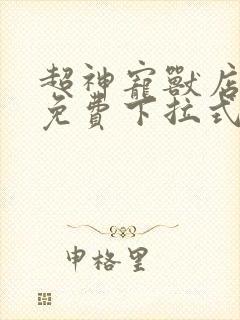 超神寵獸店
免費下拉式
申格里